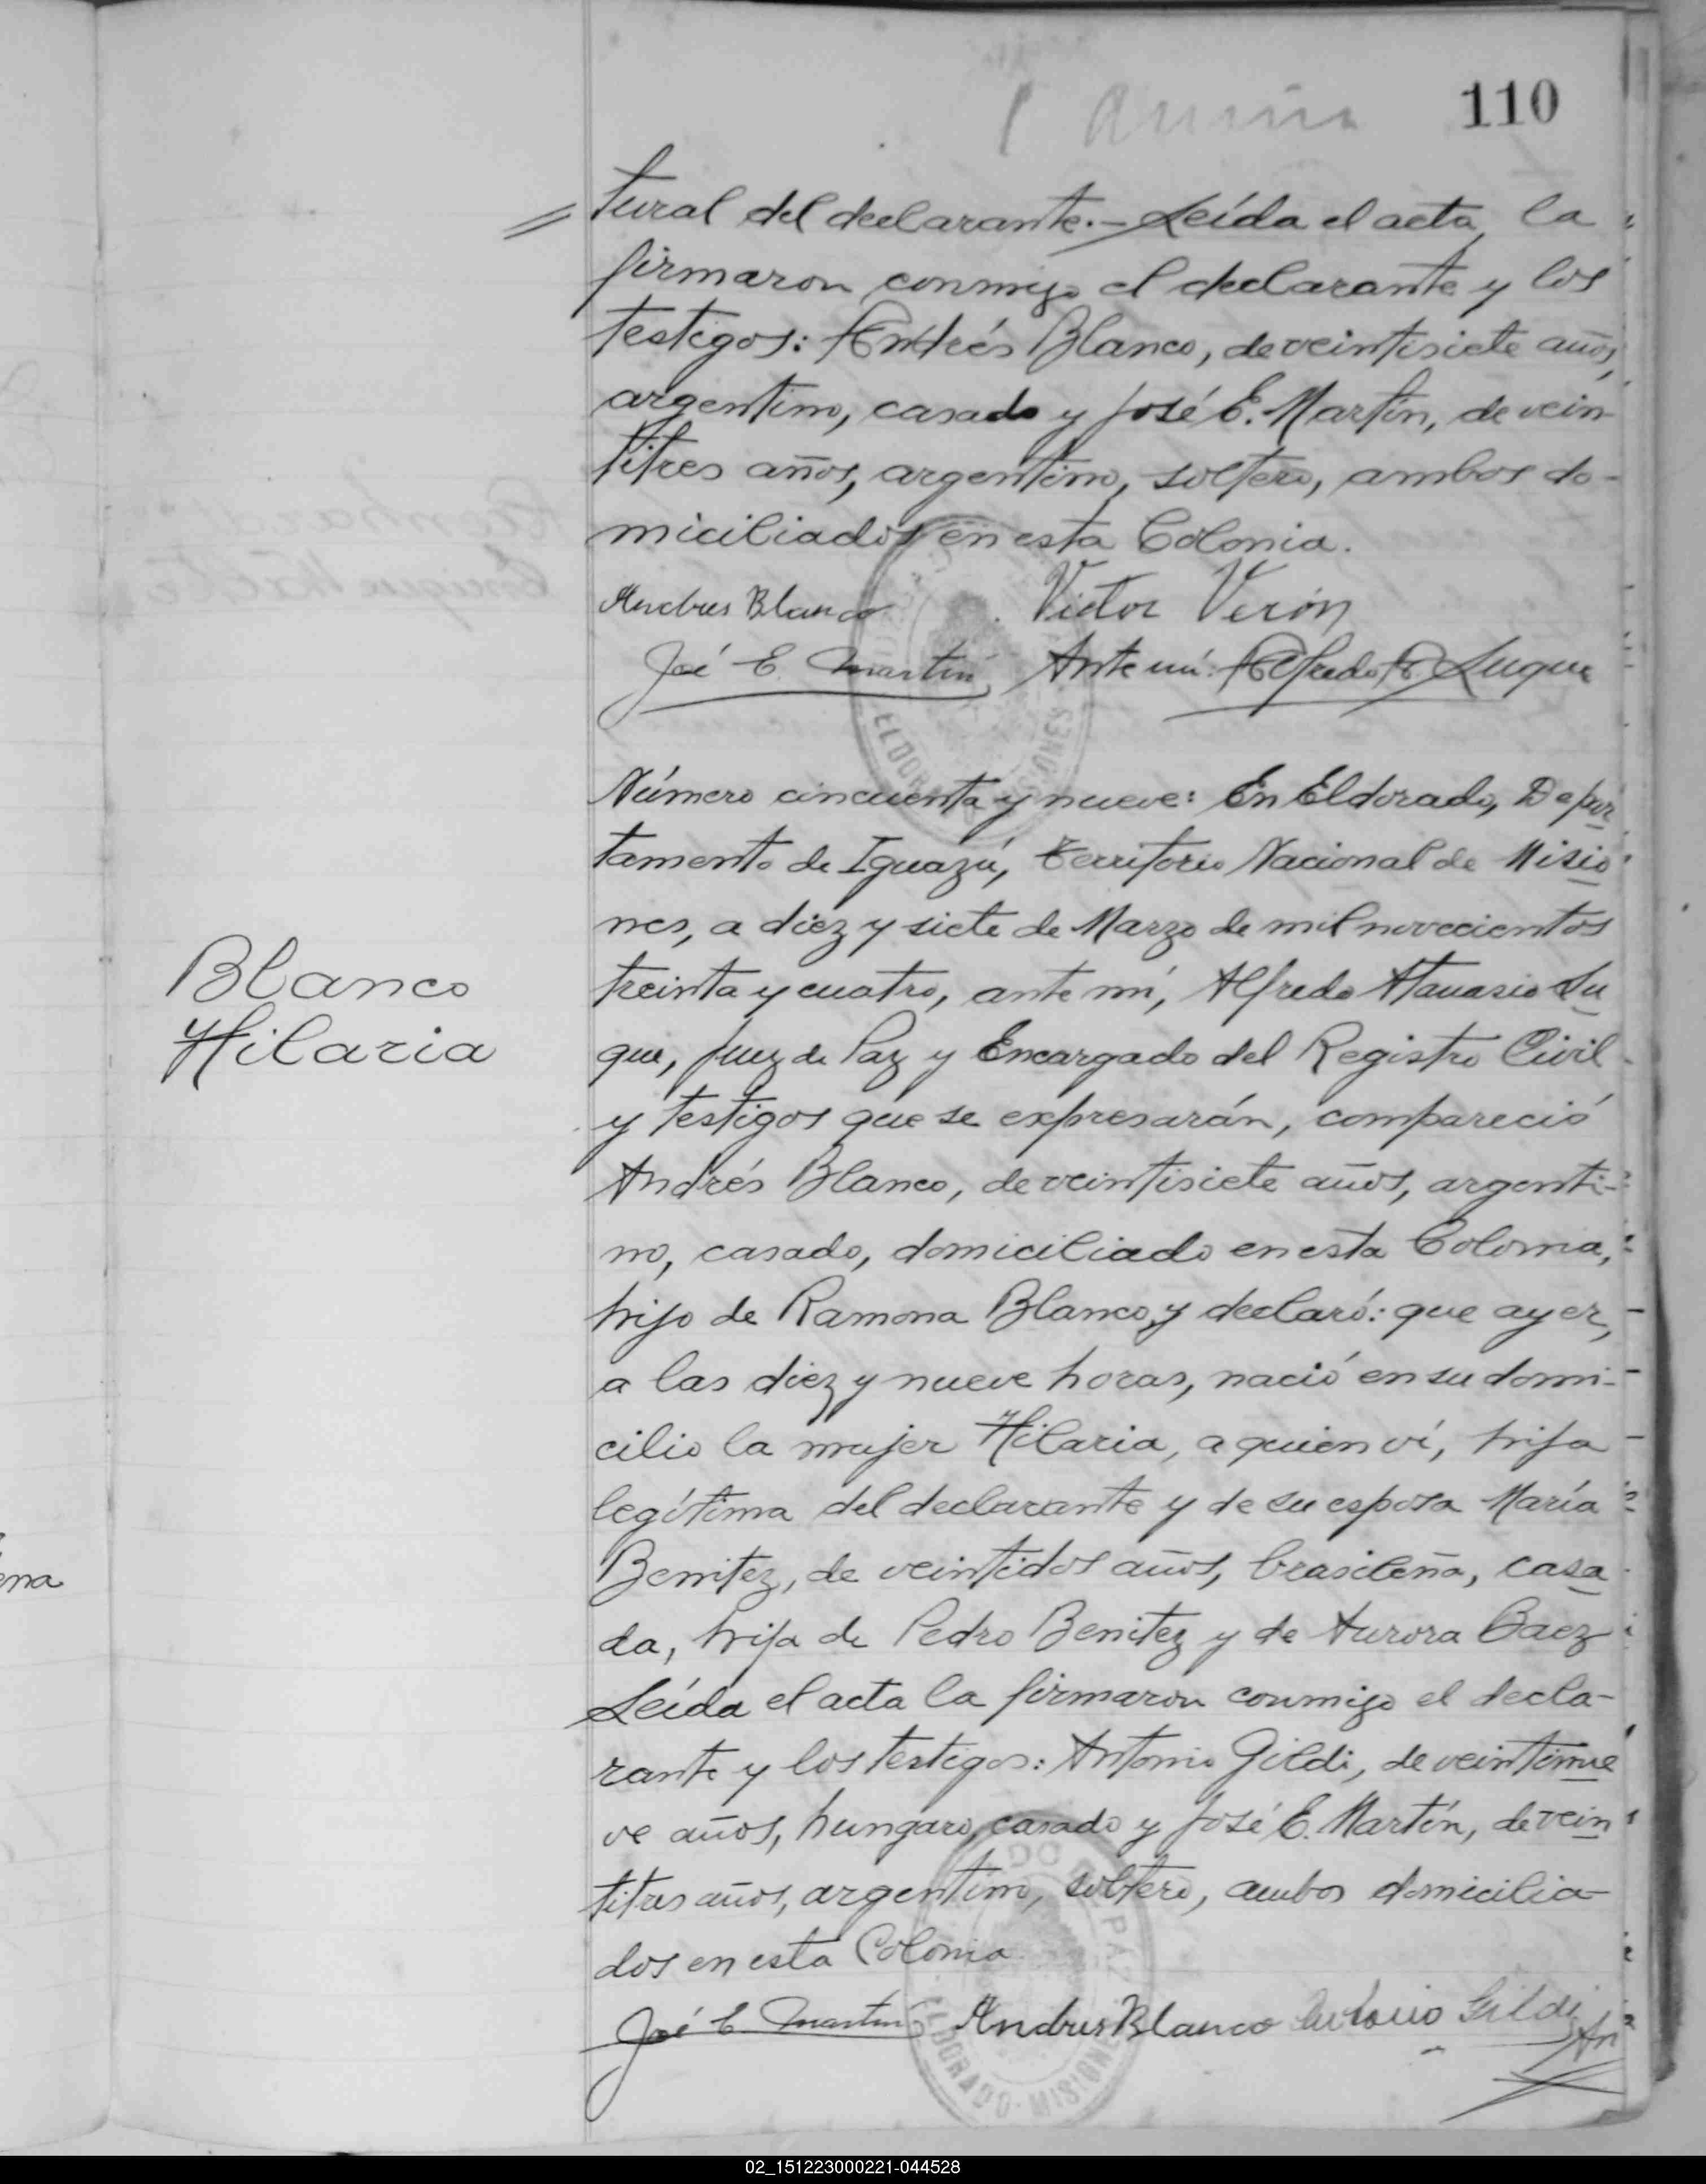 110
tural del declarante.- Leída el acta, la
firmaron conmigo el declarante y los
testigos: Andrés Blanco, de veintisiete años,
argentino, casado y José E. Martín, de vein-
titres años, argentino, soltero, ambos do-
miciliados en esta Colonia.
Andres Blanco Victor Verón
José E. Martin Ante mí: Alfredo A. Luque
ELDORADO MISIONES
Número cincuenta y nueve: En Eldorado, Depar
tamento de Iguazú, territorio Nacional de Misio
nes, a diez y siete de Marzo de mil novecientos
treinta y cuatro, ante mí, Alfredo Atanasio Lu
que, Juez de Paz y Encargado del Registro Civil
y testigos que se expresarán, compareció
Andrés Blanco, de veintisiete años, argenti-
no, casado, domiciliado en esta Colonia,
hijo de Ramona Blanco, y declaró: que ayer,
a las diez y nueve horas, nació en su domi-
cilio la mujer Hilaria, a quien ví, hija
legítima del declarante y de su esposa María
Benitez, de veintidos años, brasileña, casa
da, hija de Pedro Benitez y de Aurora Baez
Leída el acta la firmaron conmigo el decla-
rante y los testigos: Antonio Gildi, de veintinue
ve años, hungaro, casado y José E. Martín, de vein
titres años, argentino, soltero, ambos domicilia-
dos en esta Colonia.
José E Martin Andres Blanco Antonio Gildi An
ELDORADO · MISIONES
Blanco
Hilaria
02_151223000221-044528